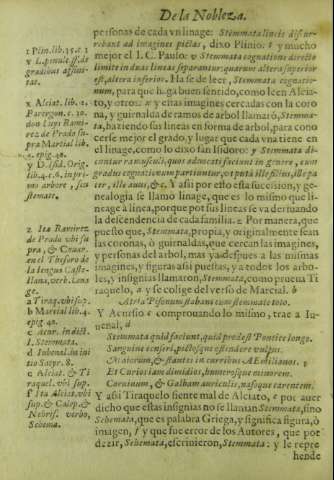 De la Nobleza.
personas de cada vn linage: Stemmata lineis discur-
rebant ad imagines pictas, dixo Plinio. t y mucho
mejor el I. C. Paulo. v Stemmata cognationum directo
limite in duas lineas separantur: quarum altera superior
est, altera inferior. Ha se de leer, Stemmata cognatio-
num, para que haga buen sentido, como leen Alcia-
to, y otros. x y estas imagines cercadas con la coro-
na, y guirnalda de ramos de arbol llamarō, Stemma-
ta, haziendo sus lineas en forma de arbol, para cono
cerse mejor el grado, y lugar que cada vna tiene en
el linage, como lo dixo san Isidoro: y Stemmata di-
cuntur ramusculi, quos aduocati faciunt in genere, cum
gradus cognationum partiuntur, ut puta ille filius, ille pa
ter, ille auus, &c. Y assi por esto esta sucession, y ge-
nealogia se llamo linage, que es lo mismo que li-
neage a linea, porque por sus lineas se va deriuando
la descendencia de cada familia. z Por manera, que
puesto que, Stemmata, propia, y originalmente sean
las coronas, ò guirnaldas, que cercan las imagines,
y personas del arbol, mas ya despues a las mismas
imagines, y figuras assi puestas, y a todos los arbo-
les, y insignias llamaron, Stemmata, como prueua Ti
raquelo, a y se colige del verso de Marcial. b
Atria Pisonum stabant cum stemmate toto.
Y Acursio c comprouando lo mismo, trae a Iu-
uenal, d
Stemmata quid faciunt, quid prodest Pontice longo
Sanguine censeri, pictosque ostendere vulpus.
Maiorum, & stantes in curribus Æmilianos.
Et Curios iam dimidios, humerosque minorem.
Coruinum, & Galbam auriculis, nasoque carentem.
Y assi Tiraquelo siente mal de Alciato, e por auer
dicho que estas insignias no se llaman Stemmata, sino
Schemata, que es palabra Griega, y significa figura, ò
imagen, f y que fue error de los Autores, que por
dezir, Schemata, escriuieron, Stemmata: y le repre
hende
t Plin. lib. 35. c. 2
v L. penult. ff. de
gradibus affini-
tat.
x Alciat. lib. 1.
Parergon. c. 10.
don Lupi Ramirez
de Prado su-
pra Martial lib.
4. epig. 40.
y D. Isid. Orig.
lib. 9. c. 6. in pri-
mo arbore, seu
stemate.
z Ita Ramirez
de Prado vbi su
pra, & Couar.
en el Thesoro de
la lengua Caste-
llana, verb. Lina
ge.
a Tiraq. vbi sup.
b Martial lib. 4.
epig. 40.
c Acur. in dict.
l. Stemmata.
d Iubenal. in ini
tio Satyr. 8.
e Alciat. & Ti
raquel. vbi sup.
f Ita Alciat. vbi
sup. & Calep. &
Nebris. verbo,
Schema.